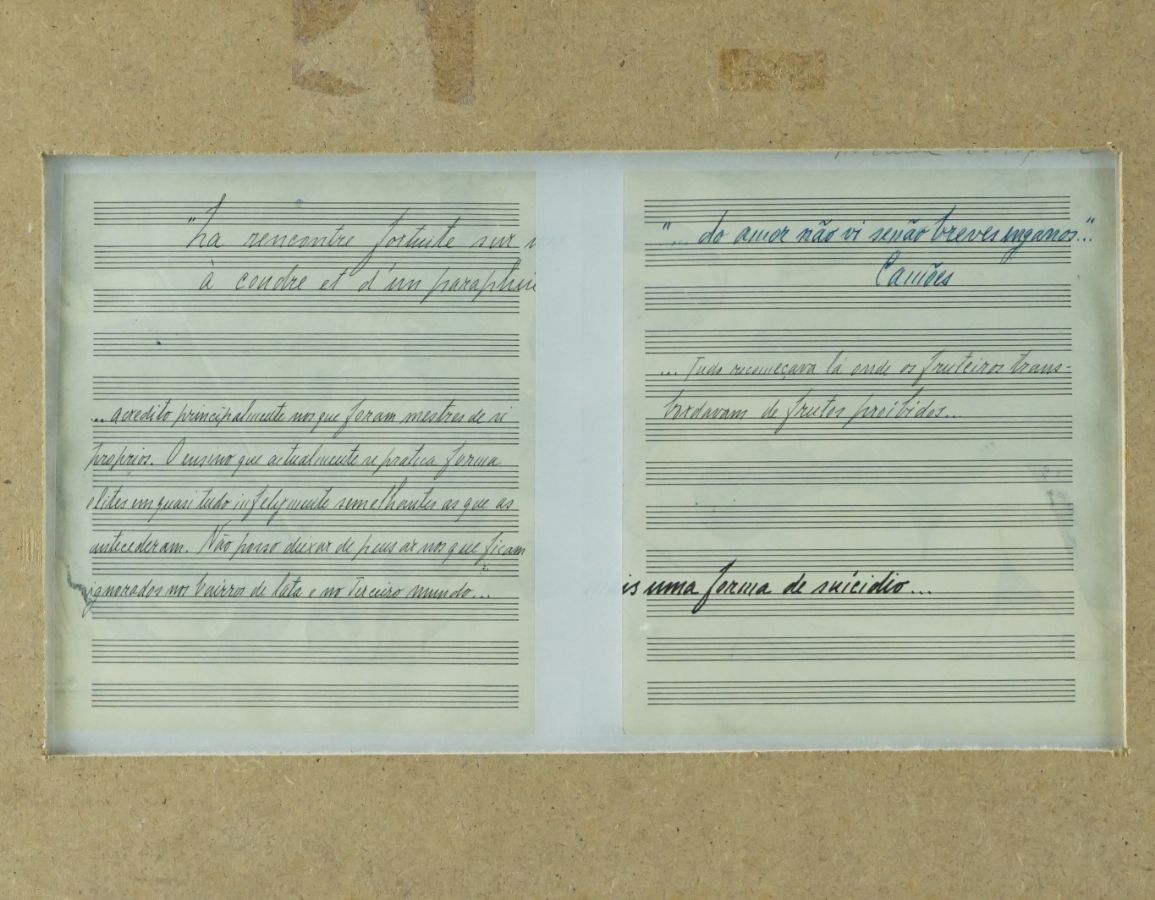 "La rencontre fortuite sur
à coudre et d'un paraplui
... acredito principalmente nos que foram mestres de si
próprios. O ensino que actualmente se pratica forma
elites em quasi tudo infelizmente semelhantes as que as
antecederam. Não posso deixar de pensar nos que ficam
ignorados nos bairros de lata e no Terceiro mundo...
"... do amor não vi senão breves enganos..."
Camões
... Tudo recomeçava lá onde os fruteiros trans-
bordavam de frutos proibidos...
is uma forma de suicidio...